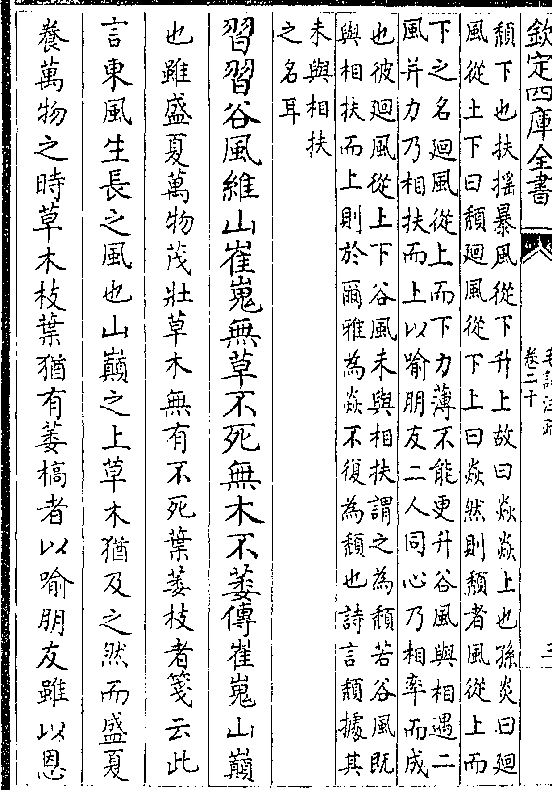 欽定四庫全書
卷二十
三
頹下也扶摇暴風從下升上故曰焱焱上也孫炎曰廻
風從上下曰頹廻風從下上曰焱然則頹者風從上而
下之名廻風從上而下力薄不能更升谷風與相遇二
風并力乃相扶而上以喻朋友二人同心乃相率而成
也彼廻風從上下谷風未與相扶謂之為頹若谷風既
與相扶而上則於爾雅為焱不復為頹也詩言頹據其
未與相扶
之名耳
習習谷風維山崔嵬無草不死無木不萎傳崔嵬山巔
也雖盛夏萬物茂壯草木無有不死葉萎枝者箋云此
言東風生長之風也山巔之上草木猶及之然而盛夏
養萬物之時草木枝葉猶有萎槁者以喻朋友雖以恩